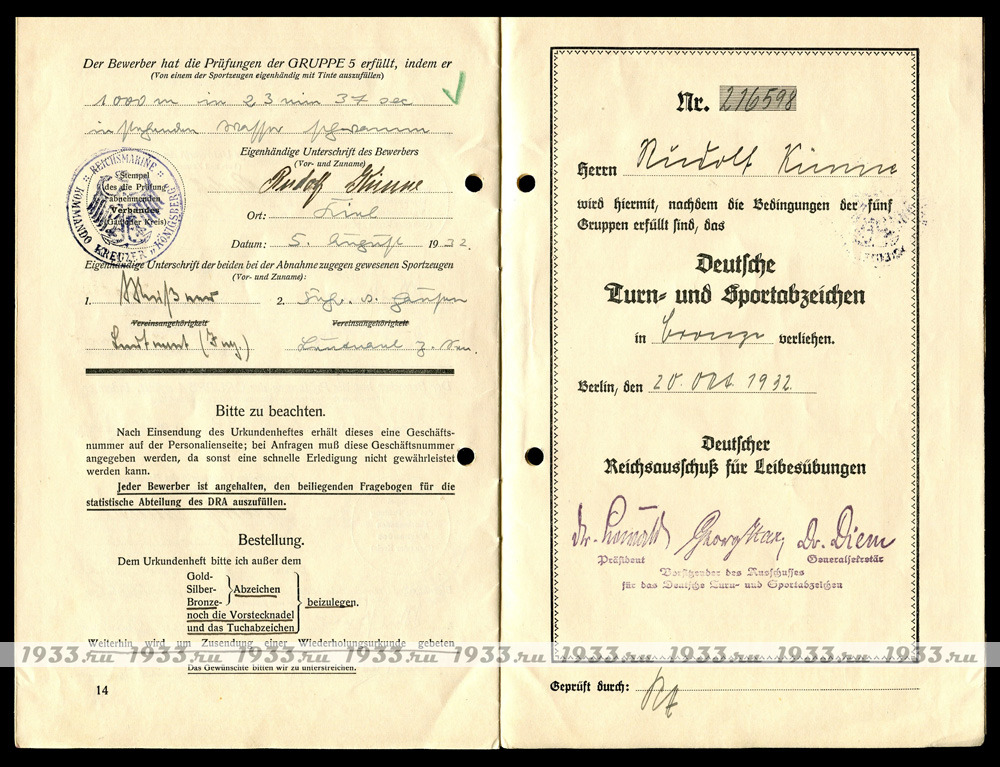 Der Bewerber hat die Prüfungen der GRUPPE 5 erfüllt, indem er
(Von einem der Sportzeugen eigenhändig mit Tinte auszufüllen)
1000 m in 23 min 37 sec
in stehenden Wasser schwamm
Eigenhändige Unterschrift des Bewerbers
(Vor- und Zuname)
Rudolf Kinne
Stempel
des die Prüfung
abnehmenden
Verbandes
(Gau oder Kreis)
REICHSMARINE
KOMMANDO KREUZER KÖNIGSBERG
Ort: Kiel
Datum: 5. August 1932.
Eigenhändige Unterschrift der beiden bei der Abnahme zugegen gewesenen Sportzeugen
(Vor- und Zuname):
1. 2.
Vereinsangehörigkeit Vereinsangehörigkeit
Leutnant (Ing.) Leutnant z. See.
Bitte zu beachten.
Nach Einsendung des Urkundenheftes erhält dieses eine Geschäfts-
nummer auf der Personalienseite; bei Anfragen muß diese Geschäftsnummer
angegeben werden, da sonst eine schnelle Erledigung nicht gewährleistet
werden kann.
Jeder Bewerber ist angehalten, den beiliegenden Fragebogen für die
statistische Abteilung des DRA auszufüllen.
Bestellung.
Dem Urkundenheft bitte ich außer dem
Gold-
Silber- Abzeichen
Bronze- beizulegen.
noch die Vorstecknadel
und das Tuchabzeichen
Weiterhin wird um Zusendung einer Wiederholungsurkunde gebeten
Das Gewünschte bitten wir zu unterstreichen.
14
Nr. 216598
Herrn Rudolf Kinne
wird hiermit, nachdem die Bedingungen der fünf
Gruppen erfüllt sind, das
Deutsche
Turn- und Sportabzeichen
in bronze verliehen.
Berlin, den 20. Okt. 1932.
Deutscher
Reichsausschuß für Leibesübungen
Dr. Lewald Georg Hax, Dr. Diem
Präsident Generalsekretär
Vorsitzender des Ausschusses
für das Deutsche Turn- und Sportabzeichen
Geprüft durch:
1933.ru 1933.ru 1933.ru 1933.ru 1933.ru 1933.ru 1933.ru 1933.ru 1933.ru